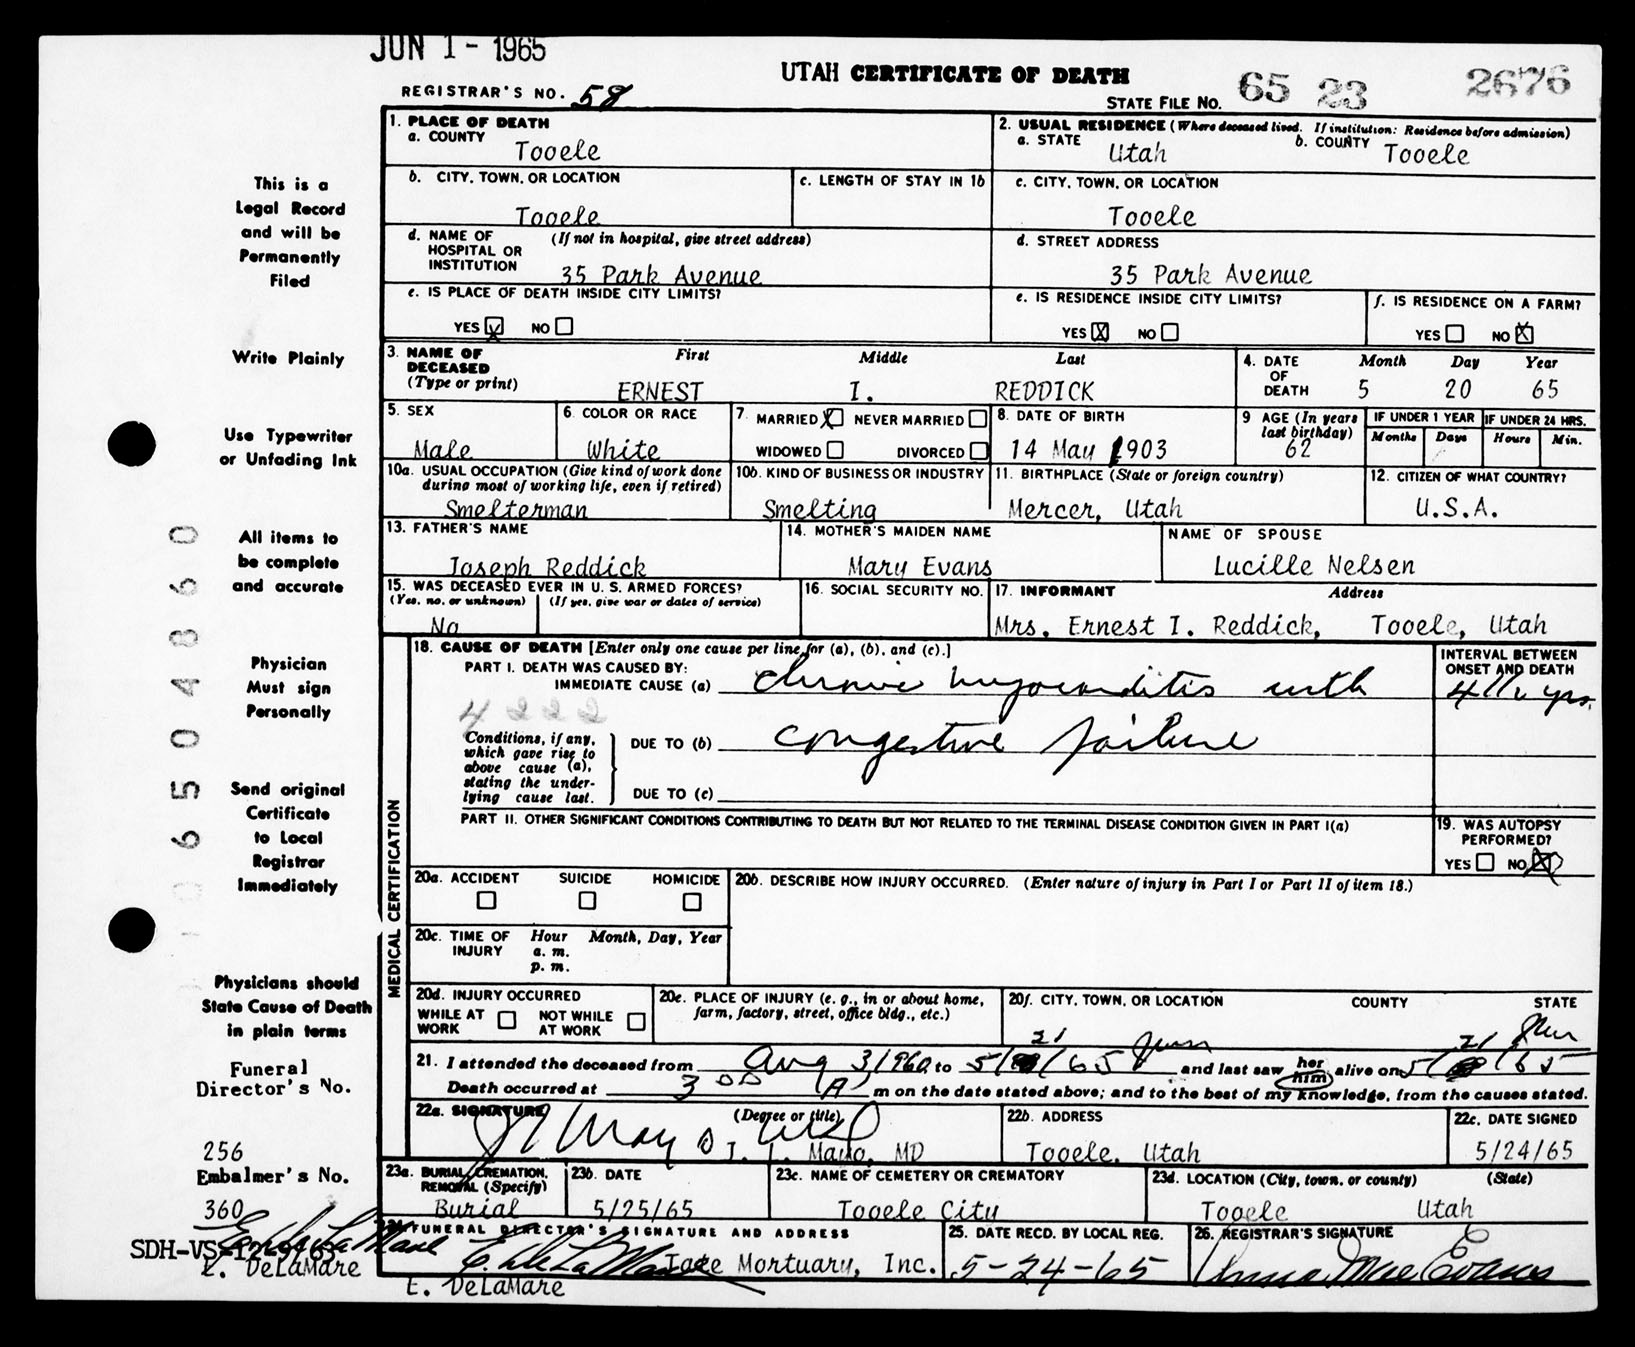 JUN 1 - 1965
UTAH CERTIFICATE OF DEATH
REGISTRAR'S NO. 58
STATE FILE NO. 65 23 2676
1. PLACE OF DEATH
a. COUNTY
Tooele
2. USUAL RESIDENCE (Where deceased lived. If institution: Residence before admission)
a. STATE
Utah
b. COUNTY
Tooele
b. CITY, TOWN, OR LOCATION
Tooele
c. LENGTH OF STAY IN 1b
c. CITY, TOWN, OR LOCATION
Tooele
d. NAME OF HOSPITAL OR INSTITUTION
(If not in hospital, give street address)
35 Park Avenue
d. STREET ADDRESS
35 Park Avenue
e. IS PLACE OF DEATH INSIDE CITY LIMITS?
YES X NO
e. IS RESIDENCE INSIDE CITY LIMITS?
YES X NO
f. IS RESIDENCE ON A FARM?
YES NO X
3. NAME OF DECEASED
(Type or print)
First Middle Last
ERNEST I. REDDICK
4. DATE OF DEATH
Month Day Year
5 20 65
5. SEX
Male
6. COLOR OR RACE
White
7. MARRIED X NEVER MARRIED
WIDOWED DIVORCED
8. DATE OF BIRTH
14 May 1903
9 AGE (In years last birthday)
62
IF UNDER 1 YEAR
Months Days
IF UNDER 24 HRS.
Hours Min.
10a. USUAL OCCUPATION (Give kind of work done during most of working life, even if retired)
Smelterman
10b. KIND OF BUSINESS OR INDUSTRY
Smelting
11. BIRTHPLACE (State or foreign country)
Mercer, Utah
12. CITIZEN OF WHAT COUNTRY?
U.S.A.
13. FATHER'S NAME
Joseph Reddick
14. MOTHER'S MAIDEN NAME
Mary Evans
NAME OF SPOUSE
Lucille Nelsen
15. WAS DECEASED EVER IN U. S. ARMED FORCES?
(Yes, no, or unknown) (If yes, give war or dates of service)
No
16. SOCIAL SECURITY NO.
17. INFORMANT Address
Mrs. Ernest I. Reddick, Tooele, Utah
MEDICAL CERTIFICATION
18. CAUSE OF DEATH [Enter only one cause per line for (a), (b), and (c).]
PART I. DEATH WAS CAUSED BY:
IMMEDIATE CAUSE (a) chronic myocarditis with
INTERVAL BETWEEN ONSET AND DEATH
4 1/2 yrs.
4222
Conditions, if any, which gave rise to above cause (a), stating the underlying cause last.
DUE TO (b) congestive failure
DUE TO (c)
PART II. OTHER SIGNIFICANT CONDITIONS CONTRIBUTING TO DEATH BUT NOT RELATED TO THE TERMINAL DISEASE CONDITION GIVEN IN PART I(a)
19. WAS AUTOPSY PERFORMED?
YES NO X
20a. ACCIDENT SUICIDE HOMICIDE
20b. DESCRIBE HOW INJURY OCCURRED. (Enter nature of injury in Part I or Part II of item 18.)
20c. TIME OF INJURY
Hour Month, Day, Year
a. m.
p. m.
20d. INJURY OCCURRED
WHILE AT WORK NOT WHILE AT WORK
20e. PLACE OF INJURY (e. g., in or about home, farm, factory, street, office bldg., etc.)
20f. CITY, TOWN, OR LOCATION COUNTY STATE
21. I attended the deceased from Aug 3 1960 to 5/21/65 and last saw her him alive on 5/21/65
Death occurred at 3 00 (A) m on the date stated above; and to the best of my knowledge, from the causes stated.
22a. SIGNATURE (Degree or title)
J. H. Mayo, MD
22b. ADDRESS
Tooele, Utah
22c. DATE SIGNED
5/24/65
23a. BURIAL, CREMATION, REMOVAL (Specify)
Burial
23b. DATE
5/25/65
23c. NAME OF CEMETERY OR CREMATORY
Tooele City
23d. LOCATION (City, town, or county) (State)
Tooele Utah
24. FUNERAL DIRECTOR'S SIGNATURE AND ADDRESS
Tate Mortuary, Inc.
E. DeLaMare
25. DATE RECD. BY LOCAL REG.
5-24-65
26. REGISTRAR'S SIGNATURE
Anna Mae Evans
This is a
Legal Record
and will be
Permanently
Filed
Write Plainly
Use Typewriter
or Unfading Ink
All items to
be complete
and accurate
Physician
Must sign
Personally
Send original
Certificate
to Local
Registrar
Immediately
Physicians should
State Cause of Death
in plain terms
Funeral
Director's No.
256
Embalmer's No.
360
SDH-VS-12-9/63
E. DeLaMare